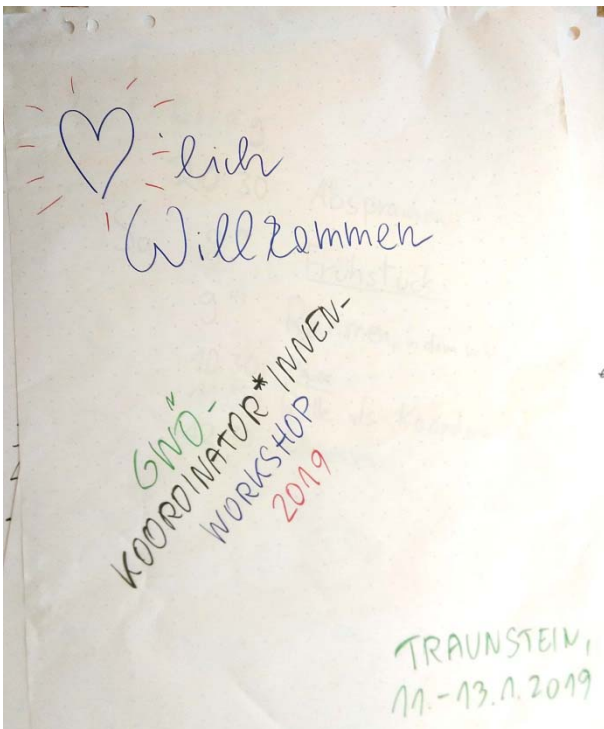 ♡lich
Willkommen
GWÖ-
KOORDINATOR*INNEN-
WORKSHOP
2019
TRAUNSTEIN,
11.-13.1.2019